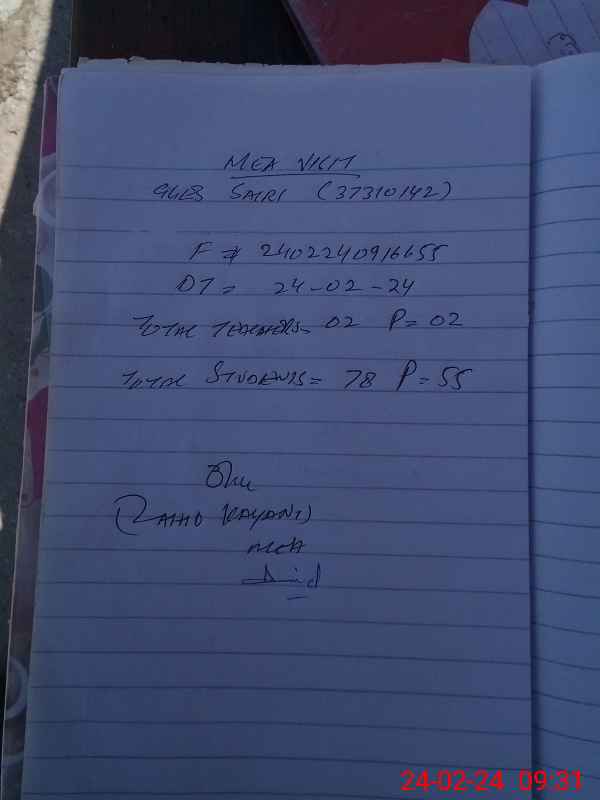 MEA VISIT
GGES SAIRI (37310142)
F # 2402240916655
DT = 24-02-24
TOTAL TEACHERS= 02 P= 02
TOTAL STUDENTS= 78 P= 55
KAYANI)
MEA
24-02-24 09:31